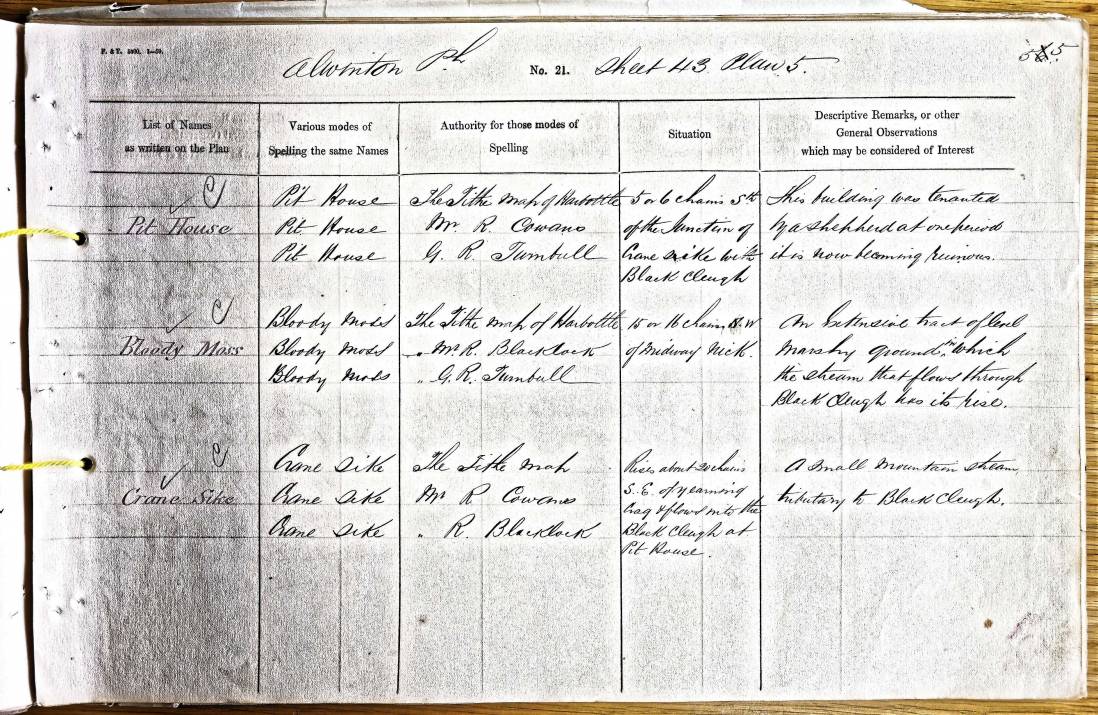 F. & Y. 5000. 1—59.
Alwinton Ph No. 21. Sheet 43 Plan 5.
List of Names
as written on the Plan
Various modes of
Spelling the same Names
Authority for those modes of
Spelling
Situation
Descriptive Remarks, or other
General Observations
which may be considered of Interest
Pit House
Pit House
Pit House
Pit House
The Tithe map of Harbottle
Mr. R. Cowans
G. R. Turnbull
5 or 6 chains Sth
of the Junction of
Crane Sike with
Black Cleugh
This building was tenanted
by a shepherd at one period
it is now becoming ruinous.
Bloody Moss
Bloody Moss
Bloody Moss
Bloody Moss
The Tithe map of Harbottle
„ Mr. R. Blacklock
„ G. R. Turnbull
15 or 16 chains N.W
of Midway Nick.
An Extensive tract of level
Marshy ground, in which
the stream that flows through
Black Cleugh has its rise.
Crane Sike
Crane Sike
Crane Sike
Crane Sike
The Tithe Map
Mr R. Cowans
„ R. Blacklock
Rises about 20 chains
S.E. of Yearning
Crag & flows into the
Black Cleugh at
Pit House.
A Small Mountain stream
tributary to Black Cleugh.